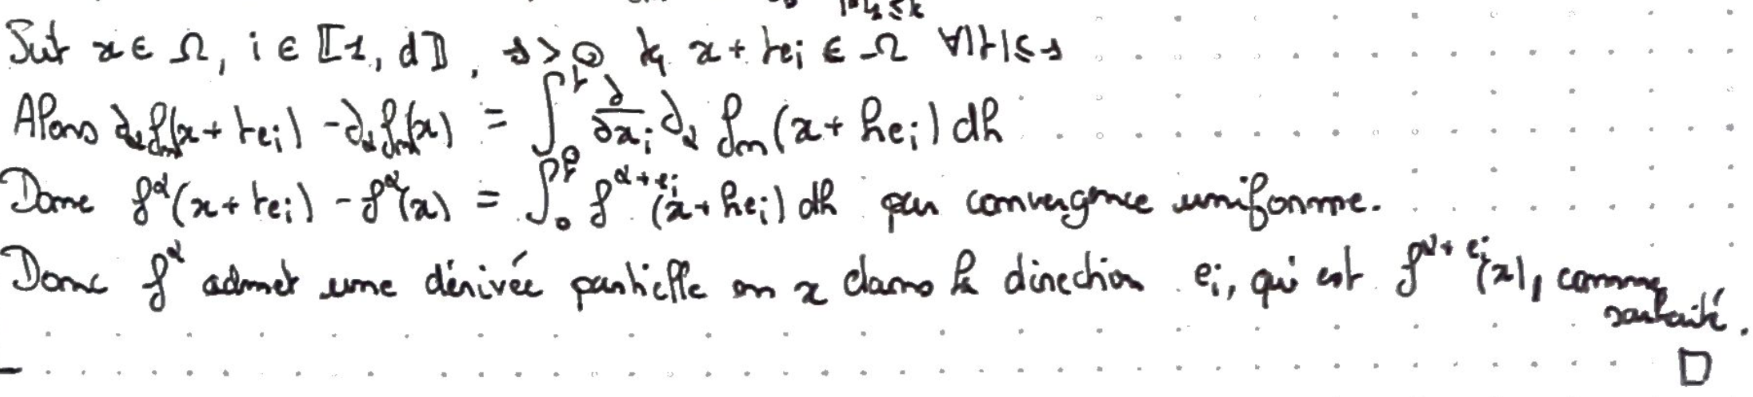 Soit x ∈ Ω, i ∈ ⟦1, d⟧, s > 0 tq x + te_i ∈ Ω ∀|t| ≤ s
Alors ∂_α f_n(x + te_i) - ∂_α f_n(x) = ∫_0^t ∂/∂x_i ∂_α f_n(x + he_i) dh
Donc f^α(x + te_i) - f^α(x) = ∫_0^t f^{α+e_i}(x + he_i) dh par convergence uniforme.
Donc f^α admet une dérivée partielle en x dans la direction e_i, qui est f^{α+e_i}(x), comme
souhaité.
□